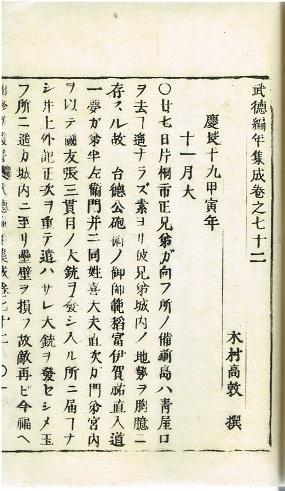 武德編年集成卷之七十二
木村高敦 撰
慶長十九甲寅年
十一月大
〇廿七日片桐市正兄弟ガ向フ所ノ備前島ハ青屋口
ヲ去ヿ遥ナラズ素ヨリ彼兄弟城内ノ地勢ヲ胸臆ニ
存スル故 台德公砲術ノ御師範稻富伊賀祐直入道
一夢ガ弟半左衞門并ニ同姓喜大夫直次ガ門弟宮内
ヲ以テ國友張三貫目ノ大銃ヲ發シ入ル所ニ届フナ
シ井上外記正次ヲ重テ遣ハサレ大銃ヲ發セシメ玉
フ所ニ遥カ城内ニ至リ壘壁ヲ損フ故敵再ビ今福ヘ
武德編年集成卷七十二 〇一